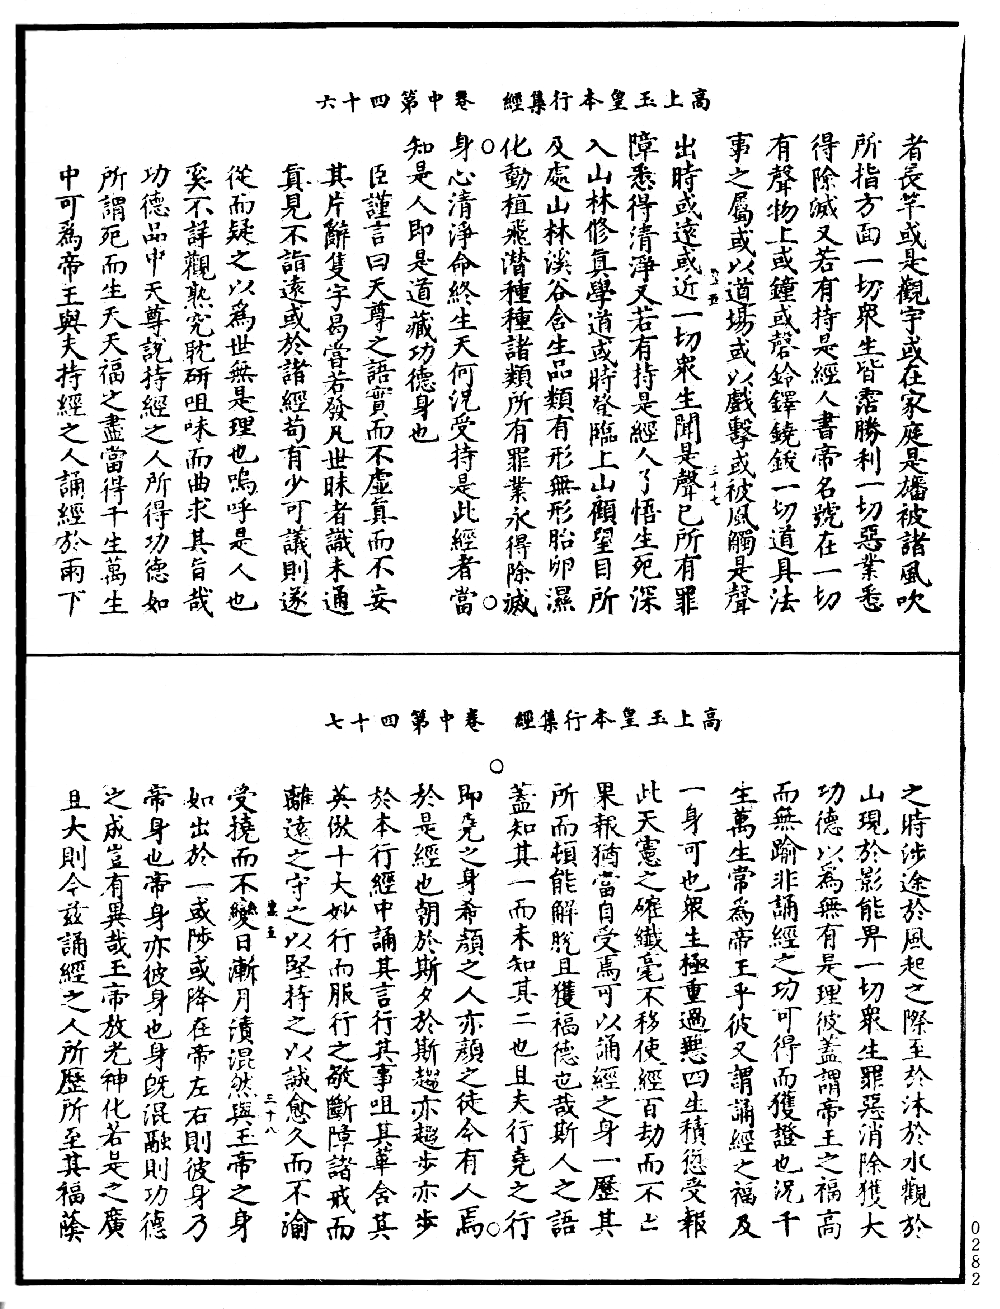 高上玉皇本行集經　卷中第四十六
者長竿或是觀宇或在家庭是旛被諸風吹
所指方面一切衆生皆霑勝利一切惡業悉
得除滅又若有持是經人書帝名號在一切
有聲物上或鐘或磬鈴鐸鐃鈸一切道具法
事之屬或以道場或以戲擊或被風觸是聲
三十七
出時或遠或近一切衆生聞是聲已所有罪
障悉得清淨又若有持是經人了悟生死深
入山林修眞學道或時登臨上山顧望目所
及處山林溪谷含生品類有形無形胎卵濕
化動植飛潛種種諸類所有罪業永得除滅
身心清淨命終生天何況受持是此經者當
知是人即是道藏功德身也
臣謹言曰天尊之語實而不虛眞而不妄
其片辭隻字曷嘗若發凡世昧者識未通
眞見不詣遠或於諸經苟有少可議則遂
從而疑之以爲世無是理也嗚呼是人也
奚不詳觀熟究耽研咀味而曲求其旨哉
功德品中天尊說持經之人所得功德如
所謂死而生天天福之盡當得千生萬生
中可爲帝王與夫持經之人誦經於雨下
高上玉皇本行集經　卷中第四十七
之時涉途於風起之際至於沐於水觀於
山現於影能畀一切衆生罪惡消除獲大
功德以為無有是理彼蓋謂帝王之福高
而無踰非誦經之功可得而獲證也況千
生萬生常爲帝王乎彼又謂誦經之福及
一身可也衆生極重過惡四生積愆受報
此天憲之確纖毫不移使經百劫而不亡
果報猶當自受焉可以誦經之身一歷其
所而頓能解脫且獲福德也哉斯人之語
蓋知其一而未知其二也且夫行堯之行
即堯之身希顏之人亦顏之徒今有人焉
於是經也朝於斯夕於斯趨亦趨步亦步
於本行經中誦其言行其事咀其華含其
英倣十大妙行而服行之敬斷障諸戒而
離遠之守之以堅持之以誠愈久而不渝
三十八
受撓而不變日漸月漬混然與玉帝之身
如出於一或陟或降在帝左右則彼身乃
帝身也帝身亦彼身也身既混融則功德
之成豈有異哉玉帝放光神化若是之廣
且大則今茲誦經之人所歷所至其福蔭
0282